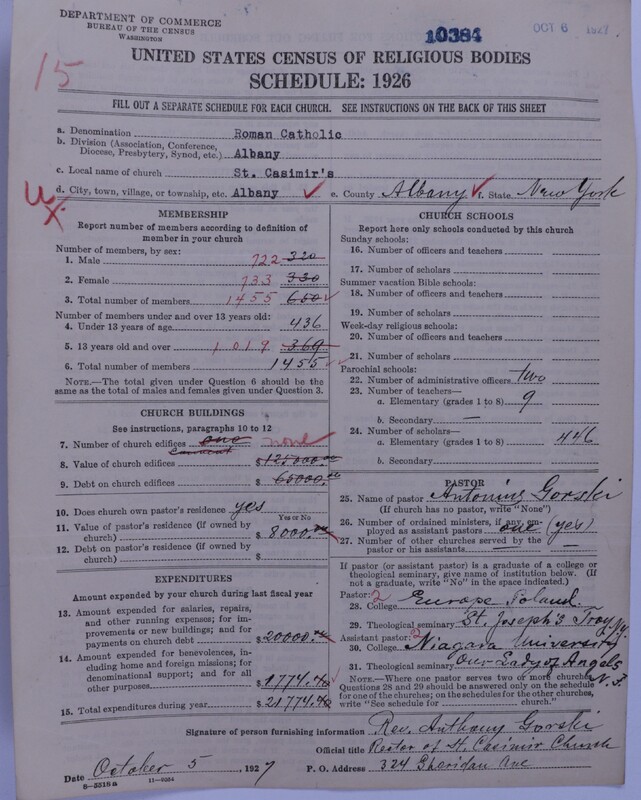 DEPARTMENT OF COMMERCE
BUREAU OF THE CENSUS
WASHINGTON
10384
OCT 6 1927
15
UNITED STATES CENSUS OF RELIGIOUS BODIES
SCHEDULE: 1926
FILL OUT A SEPARATE SCHEDULE FOR EACH CHURCH. SEE INSTRUCTIONS ON THE BACK OF THIS SHEET
a. Denomination Roman Catholic
b. Division (Association, Conference, Diocese, Presbytery, Synod, etc.) Albany
c. Local name of church St. Casimir's
d. City, town, village, or township, etc. Albany e. County Albany f. State New York
MEMBERSHIP
Report number of members according to definition of member in your church
Number of members, by sex:
1. Male 722 320
2. Female 733 330
3. Total number of members 1455 650
Number of members under and over 13 years old:
4. Under 13 years of age 436
5. 13 years old and over 1019 369
6. Total number of members 1455
NOTE.—The total given under Question 6 should be the same as the total of males and females given under Question 3.
CHURCH BUILDINGS
See instructions, paragraphs 10 to 12
7. Number of church edifices one none
8. Value of church edifices $125000.00
9. Debt on church edifices $65000.00
10. Does church own pastor's residence yes
Yes or No
11. Value of pastor's residence (if owned by church) $8000.00
12. Debt on pastor's residence (if owned by church) $
EXPENDITURES
Amount expended by your church during last fiscal year
13. Amount expended for salaries, repairs, and other running expenses; for improvements or new buildings; and for payments on church debt $20000.00
14. Amount expended for benevolences, including home and foreign missions; for denominational support; and for all other purposes $1774.40
15. Total expenditures during year $21774.40
CHURCH SCHOOLS
Report here only schools conducted by this church
Sunday schools:
16. Number of officers and teachers
17. Number of scholars
Summer vacation Bible schools:
18. Number of officers and teachers
19. Number of scholars
Week-day religious schools:
20. Number of officers and teachers
21. Number of scholars
Parochial schools:
22. Number of administrative officers two
23. Number of teachers—
a. Elementary (grades 1 to 8) 9
b. Secondary —
24. Number of scholars—
a. Elementary (grades 1 to 8) 446
b. Secondary
PASTOR
25. Name of pastor Antonius Gorski
(If church has no pastor, write "None")
26. Number of ordained ministers, if any, employed as assistant pastors one (yes)
27. Number of other churches served by the pastor or his assistants — —
If pastor (or assistant pastor) is a graduate of a college or theological seminary, give name of institution below. (If not a graduate, write "No" in the space indicated.)
Pastor: 2
28. College Europe Poland
29. Theological seminary St. Joseph's Troy N.Y.
Assistant pastor: 2
30. College Niagara University
31. Theological seminary Our Lady of Angels N.F.
NOTE.—Where one pastor serves two or more churches, Questions 28 and 29 should be answered only on the schedule for one of the churches; on the schedules for the other churches, write "See schedule for church."
Signature of person furnishing information Rev. Anthony Gorski
Official title Rector of St. Casimir Church
Date October 5, 1927 P. O. Address 324 Sheridan Ave
8-5518a 11-9204